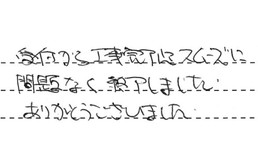 受付から工事完了までスムーズに
問題なく終了しました。
ありがとうございました